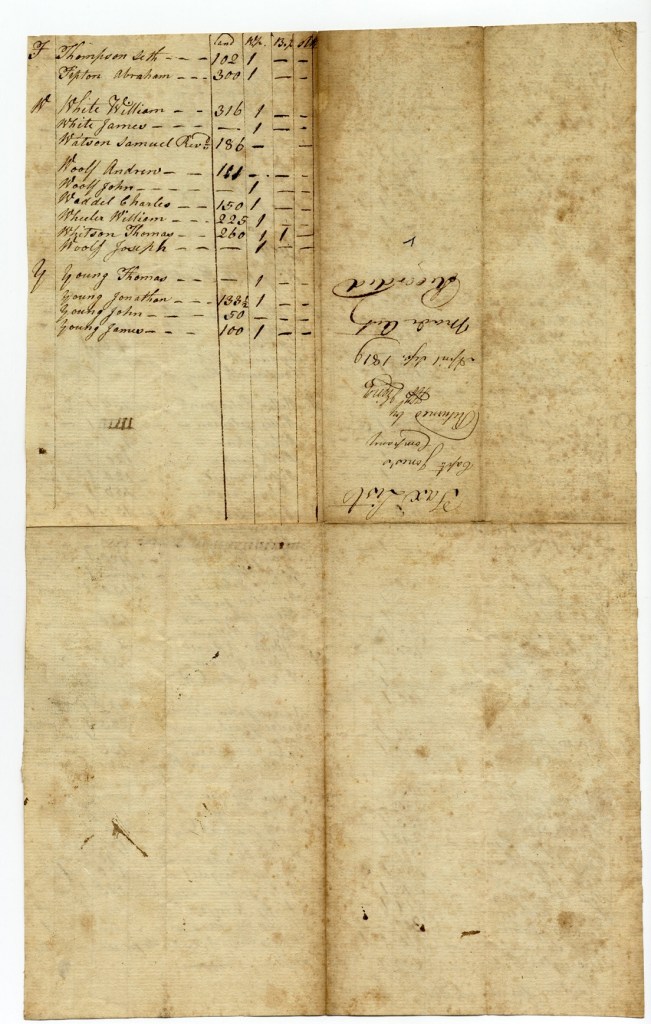 Land W.P. B.P. Std
T Thompson Seth - - - 102 1 - -
Tipton Abraham - - - 300 1 - -
W White William - - 316 1 - -
White James - - - — 1 - -
Watson Samuel Revd 186 - -
Woolf Andrew - - 111 - - -
Woolf John - - - — 1 - -
Waddel Charles - - 150 1 - -
Wheeler William - - - 225 1 - -
Whitson Thomas - - 260 1 1 -
Woolf Joseph - - — 1 - -
Y Young Thomas - - — 1 - -
Young Jonathan - - - 138½ 1 - -
Young John - - - 50 - - -
Young James - - - 100 1 - -
Tax List
Capt Jones's
Company
Returned by
King
April 1819
Made Out
Recorded